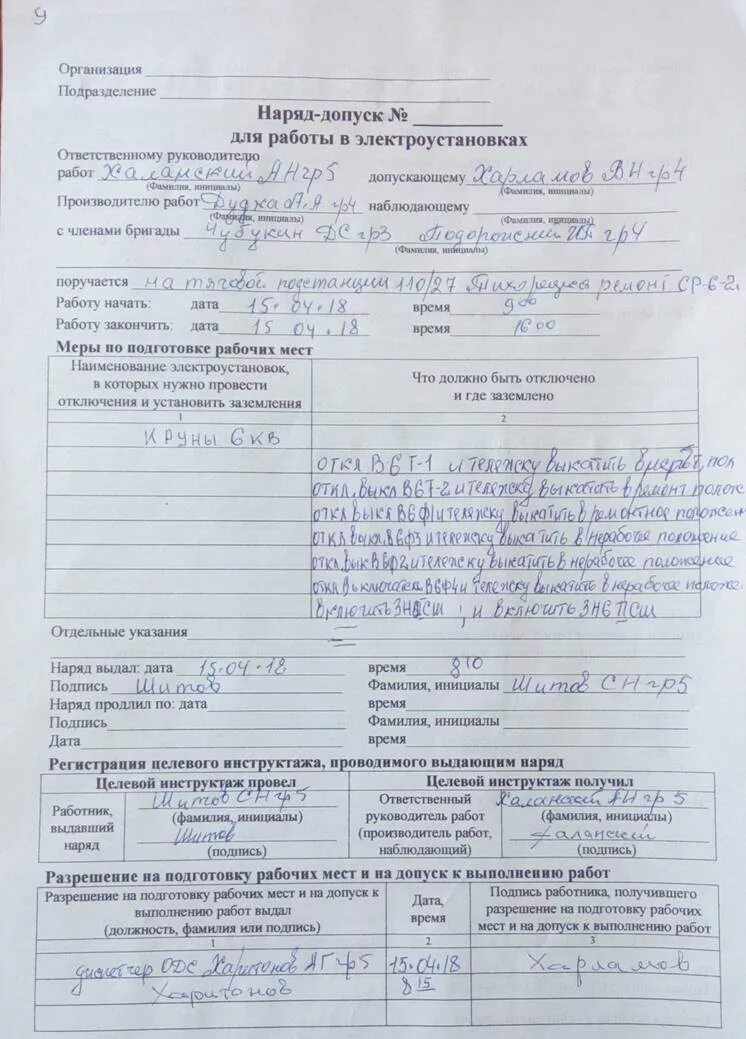 9
Организация
Подразделение
Наряд-допуск №
для работы в электроустановках
Ответственному руководителю
работ Халанский АН гр5 допускающему Харламов ВН гр4
(Фамилия, инициалы) (Фамилия, инициалы)
Производителю работ Дуджа А гр4 наблюдающему
(Фамилия, инициалы) (Фамилия, инициалы)
с членами бригады Чубукин ДС гр3 гр4
(Фамилия, инициалы)
поручается на тяговой подстанции 110/27 Тихорецка ремонт СР-6-2
Работу начать: дата 15.04.18 время 9 00
Работу закончить: дата 15 04.18 время 16 00
Меры по подготовке рабочих мест
Наименование электроустановок,
в которых нужно провести
отключения и установить заземления
Что должно быть отключено
и где заземлено
1 2
КРУНы 6 КВ
откл В6 Т-1 и тележку выкатить в пол
откл. выкл В6Т-2 и тележку выкатать в ремонт полож
откл выкл В6ф1 и тележку выкатить в ремонтное положен
откл выкл. В6ф3 и тележку выкатить в нерабочее положение
откл вык В6ф2 и тележку выкатить в нерабочее положение
откл выключатель В6ф4 и тележку выкатить в нерабочее положе
включить и включить ЗН6 ПСШ
Отдельные указания
Наряд выдал: дата 15.04.18 время 8 10
Подпись Шитов Фамилия, инициалы Шитов СН гр5
Наряд продлил по: дата время
Подпись Фамилия, инициалы
Дата время
Регистрация целевого инструктажа, проводимого выдающим наряд
Целевой инструктаж провел Целевой инструктаж получил
Работник,
выдавший
наряд
Шитов СН гр5
(фамилия, инициалы)
Шитов
(подпись)
Ответственный
руководитель работ
(производитель работ,
наблюдающий)
Халанский АН гр 5
(фамилия, инициалы)
Халанский
(подпись)
Разрешение на подготовку рабочих мест и на допуск к выполнению работ
Разрешение на подготовку рабочих мест и на допуск к
выполнению работ выдал
(должность, фамилия или подпись)
Дата,
время
Подпись работника, получившего
разрешение на подготовку рабочих
мест и на допуск к выполнению работ
1 2 3
диспетчер ОДС Харитонов АГ гр5 15.04.18 Харламов
Харитонов 8 15